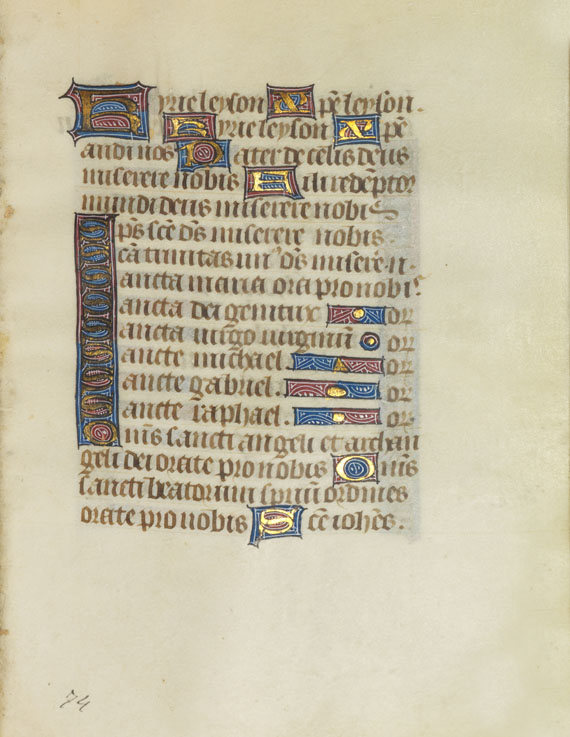 Kyrieleyson Xpe leyson.
Kyrieleyson Xpe
audi nos Pater de celis deus
miserere nobis Fili redemptor
mundi deus miserere nobis
Sps sce ds miserere nobis.
Sca trinitas un' ds misere. n.
Sancta maria ora pro nobis
Sancta dei genitrix or
Sancta virgo virginū or
Sancte michael. or
Sancte gabriel. or
Sancte raphael. or
Omīs sancti angeli et archan
geli dei orate pro nobis Omīs
sancti beatorum spirituū ordines
orate pro nobis Sce iohēs.
74